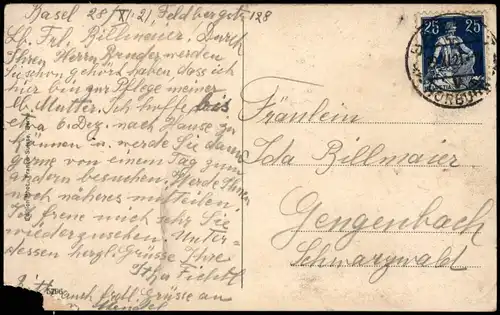 Basel 28/XI.21, Feldbergstr 128
Lb. Frl. Billmeier. Durch
Ihren Herrn Bruder werden
Sie schon gehört haben dass ich
hier bin zur Pflege meiner
lb. Mutter. Ich hoffe bis
6. Dez. nach Hause zu
können u. werde Sie dann
gerne von einem Tag zum
andern besuchen. Werde Ihnen
noch näheres mitteilen.
Ich freue mich sehr Sie
wiederzusehen. Unter-
dessen herzl. Grüsse Ihre
Bitte auch frdl. Grüsse an
25 25
Fräulein
Ida Billmaier
Gengenbach
Schwarzwald